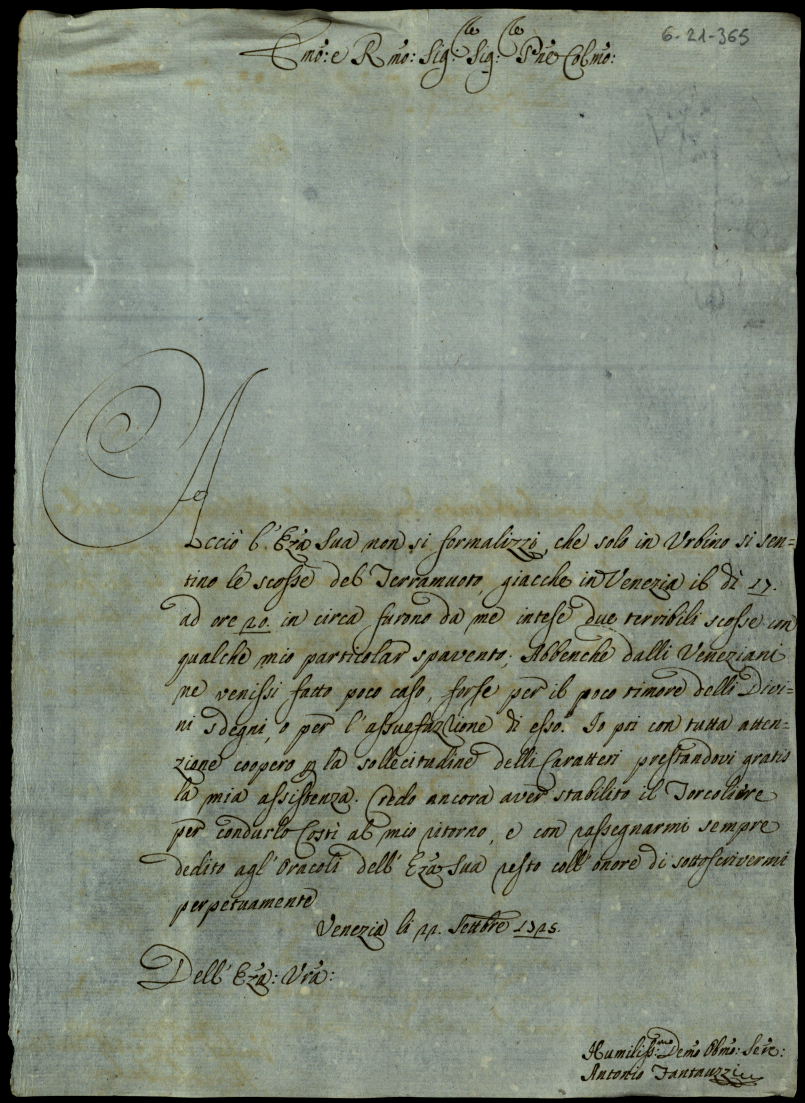 6-21-365
Emo: e Rmo: Sig:re Sig:re Pñe Colmo:
Acciò l'Eza Sua non si formalizzi, che solo in Urbino si sen=
tino le scosse del Terramuoto, giacche in Venezia il dì 17.
ad ore 20. in circa furono da me intese due terribili scosse con
qualche mio particolar spavento; Abbenche dalli Veneziani
ne venissi fatto poco caso, forse per il poco timore delli Divi=
ni Sdegni, o per l'assuefazzione di esso. Io poi con tutta atten=
zione coopero p la sollecitudine delli Caratteri prestandovi gratis
la mia assistenza. Credo ancora aver stabilito il Torcoliere
per condurlo Costì al mio ritorno, e con rassegnarmi sempre
dedito agl'Oracoli dell'Eza Sua resto coll'onore di sottoscrivermi
perpetuamente
Venezia li 22. Settbre
Dell'Eza: Vra:
Humiliss:mo Demo Obmo: Serre:
Antonio Fantauzzi